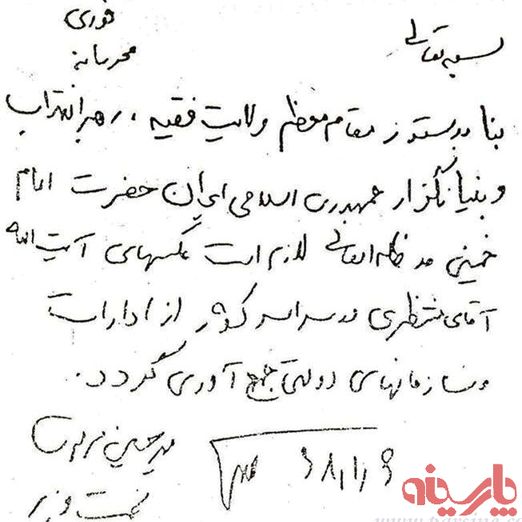 بسمه تعالی
فوری
محرمانه
بنا بدستور مقام معظم ولایت فقیه، رهبر انقلاب
و بنیانگزار جمهوری اسلامی ایران حضرت امام
خمینی مد ظله العالی لازم است عکسهای آیت الله
آقای منتظری در سراسر کشور از ادارات
و سازمانهای دولتی جمع آوری گردد.
میر حسین موسوی
نخست وزیر
۶۸/۱/۶
پارسینه